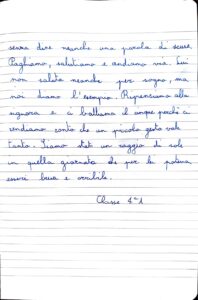 senza dire neanche una parola di scuse.
Paghiamo, salutiamo e andiamo via. Lui
non saluta neanche per sogno, ma
noi diamo l'esempio. Ripensiamo alla
signora e ci battiamo il cinque perché ci
rendiamo conto che un piccolo gesto vale
tanto. Siamo stati un raggio di sole
in quella giornata che per lei poteva
essere buia e orribile.
Classe 4ª A